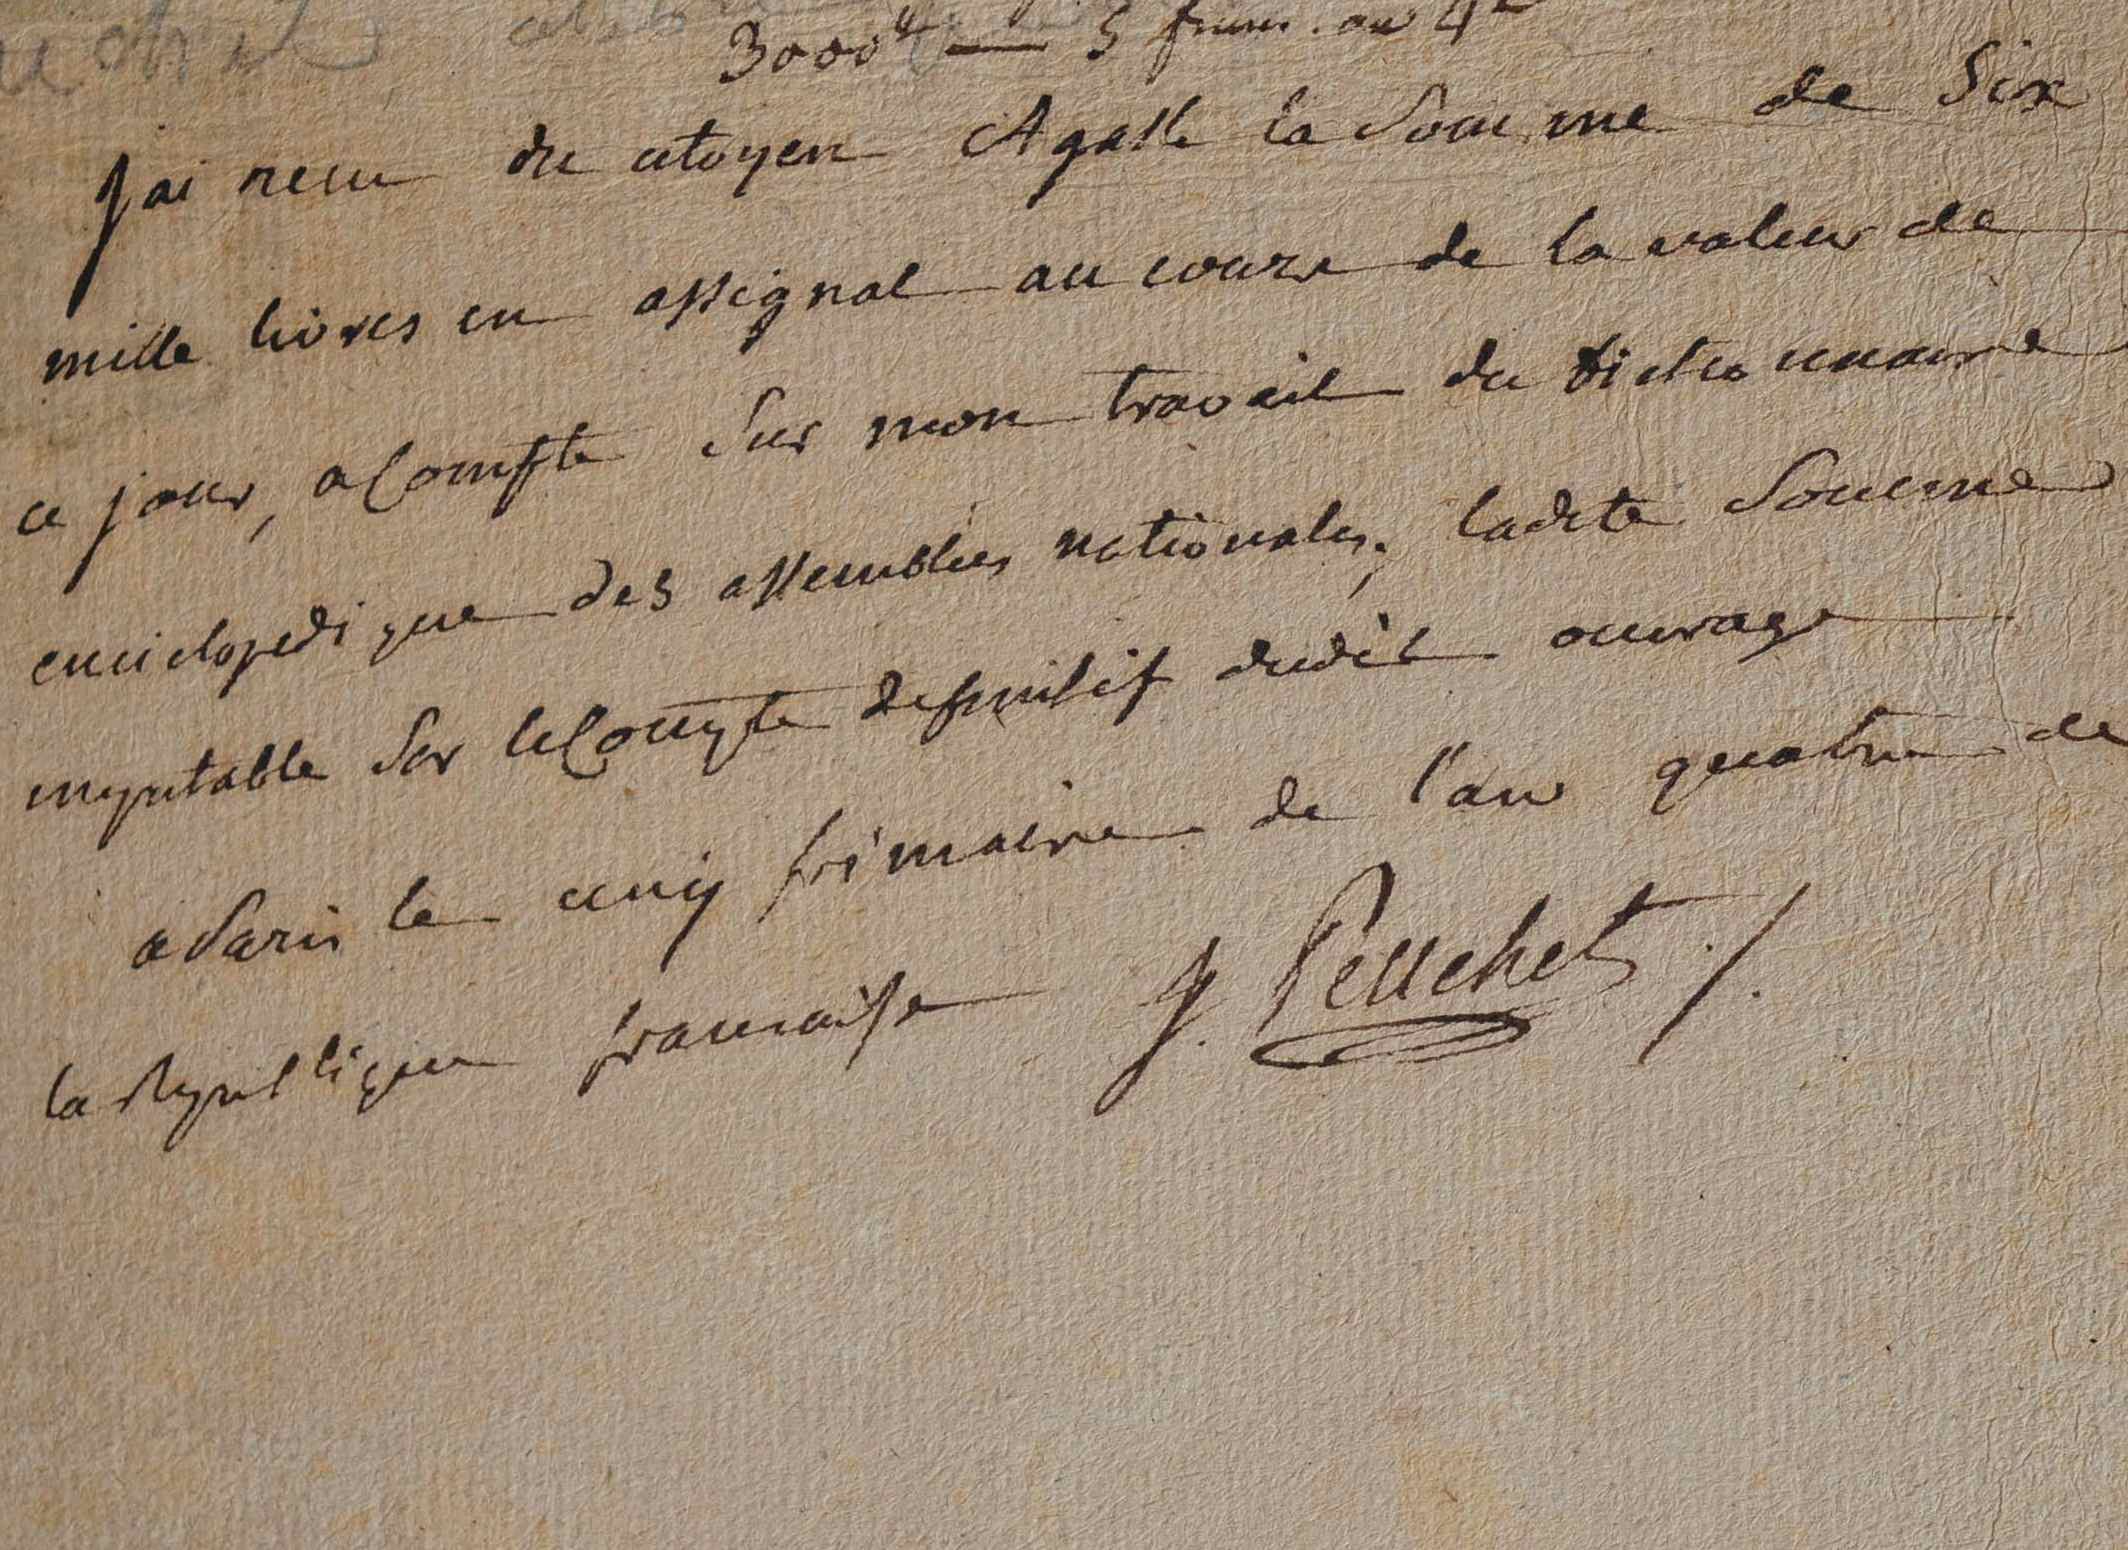 3000 — 5 frim. an 4e
J'ai recu du citoyen Agasse la Somme de Six
mille livres en assignat au cours de la valeur de
ce jour, a Compte Sur mon travail du Dictionnaire
enciclopedique des assemblées nationales; ladite Somme
imputable Sur le Compte definitif dudit ouvrage
a Paris le cinq frimaire de l'an quatre de
la Republique francaise J. Peuchet